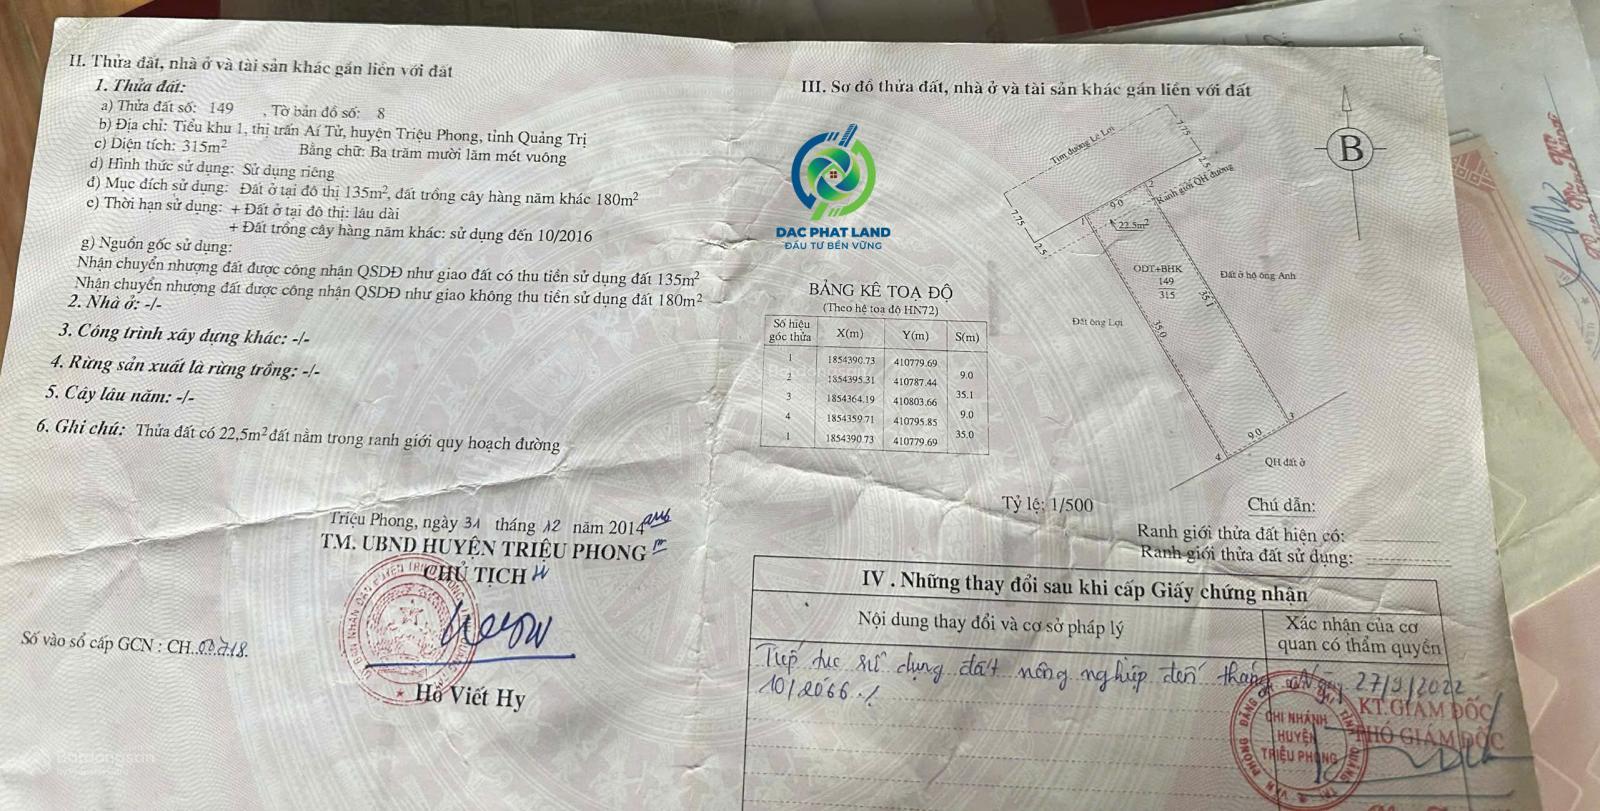 II. Thửa đất, nhà ở và tài sản khác gắn liền với đất
1. Thửa đất:
a) Thửa đất số: 149 , Tờ bản đồ số: 8
b) Địa chỉ: Tiểu khu 1, thị trấn Aí Tử, huyện Triệu Phong, tỉnh Quảng Trị
c) Diện tích: 315m² Bằng chữ: Ba trăm mười lăm mét vuông
d) Hình thức sử dụng: Sử dụng riêng
đ) Mục đích sử dụng: Đất ở tại đô thị 135m², đất trồng cây hàng năm khác 180m²
e) Thời hạn sử dụng: + Đất ở tại đô thị: lâu dài
+ Đất trồng cây hàng năm khác: sử dụng đến 10/2016
g) Nguồn gốc sử dụng:
Nhận chuyển nhượng đất được công nhận QSDĐ như giao đất có thu tiền sử dụng đất 135m²
Nhận chuyển nhượng đất được công nhận QSDĐ như giao không thu tiền sử dụng đất 180m²
2. Nhà ở: -/-
3. Công trình xây dựng khác: -/-
4. Rừng sản xuất là rừng trồng: -/-
5. Cây lâu năm: -/-
6. Ghi chú: Thửa đất có 22,5m² đất nằm trong ranh giới quy hoạch đường
Triệu Phong, ngày 31 tháng 12 năm 2014
TM. UBND HUYỆN TRIỆU PHONG
CHỦ TỊCH
Hồ Viết Hy
Số vào sổ cấp GCN : CH
III. Sơ đồ thửa đất, nhà ở và tài sản khác gắn liền với đất
DAC PHAT LAND
ĐẦU TƯ BỀN VỮNG
B
Tim đường Lê Lợi
7.75
2.5
Ranh giới QH đường
7.75
2.5
1
9.0
2
22.5m²
ODT+BHK
149
315
Đất ở hộ ông Anh
Đất ông Lợi
35.0
35.1
3
9.0
4
QH đất ở
BẢNG KÊ TOẠ ĐỘ
(Theo hệ tọa độ HN72)
Số hiệu góc thửa X(m) Y(m) S(m)
1 1854390.73 410779.69
9.0
2 1854395.31 410787.44
35.1
3 1854364.19 410803.66
9.0
4 1854359.71 410795.85
35.0
1 1854390.73 410779.69
Tỷ lệ: 1/500
Chú dẫn:
Ranh giới thửa đất hiện có:
Ranh giới thửa đất sử dụng:
IV . Những thay đổi sau khi cấp Giấy chứng nhận
Nội dung thay đổi và cơ sở pháp lý
Xác nhận của cơ
quan có thẩm quyền
Tiếp tục sử dụng đất nông nghiệp đến tháng
10/2066./.
Ngày 27/9/2022
KT.GIÁM ĐỐC
PHÓ GIÁM ĐỐC
CHI NHÁNH
HUYỆN
TRIỆU PHONG
Batdongsan